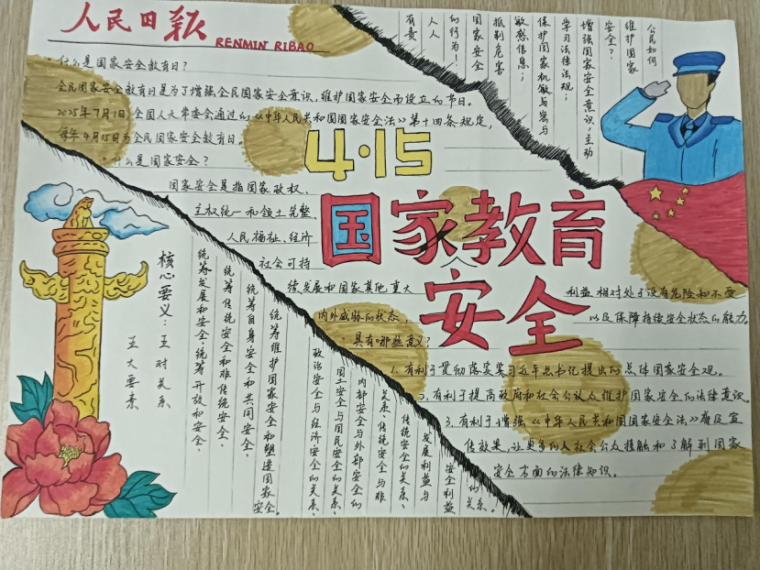 人民日报
RENMIN RIBAO
·什么是国家安全教育日?
全民国家安全教育日是为了增强全民国家安全意识,维护国家安全而设立的节日。
2025年7月1日全国人大常委会通过的《中华人民共和国国家安全法》第十四条规定,
每年4月15日为全民国家安全教育日。
·什么是国家安全?
国家安全是指国家政权、
主权统一和领土完整、
人民福祉、经济
社会可持
续发展和国家其他重大
利益相对处于没有危险和不受
内外威胁的状态
以及保障持续安全状态的能力。
公民如何
维护国家
安全?
增强国家安全意识,主动
学习法律法规;
保护国家机敏与
敏感信息;
抵制危害
国家安全
的行为!
人人
有责
4·15
国家教育
安全
·具有哪些意义?
1.有利于贯彻落实习近平总书记提出的总体国家安全观。
2.有利于提高政府和社会公众人维护国家安全的法律意识。
3.有利于增强《中华人民共和国国家安全法》普及宣
传效果,让更多的人社会公众接触和了解到国家
安全方面的法律知识。
核心要义:五对关系
五大要素
统筹发展和安全,统筹开放和安全、
统筹传统安全和非传统安全、
统筹自身安全和共同安全、
统筹维护国家安全和塑造国家安全。
政治安全与经济安全的关系、
国土安全与国民安全的关系、
内部安全与外部安全的
关系、传统安全与非
传统安全的关系、
发展利益与
安全利益
的关系。